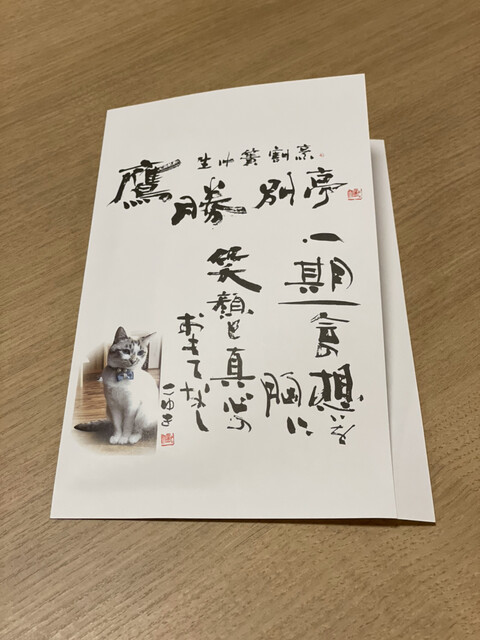 生け簀割烹
鷹勝 別亭
一期一会の想いを
胸に
笑顔と真心の
おもてなし
こゆき